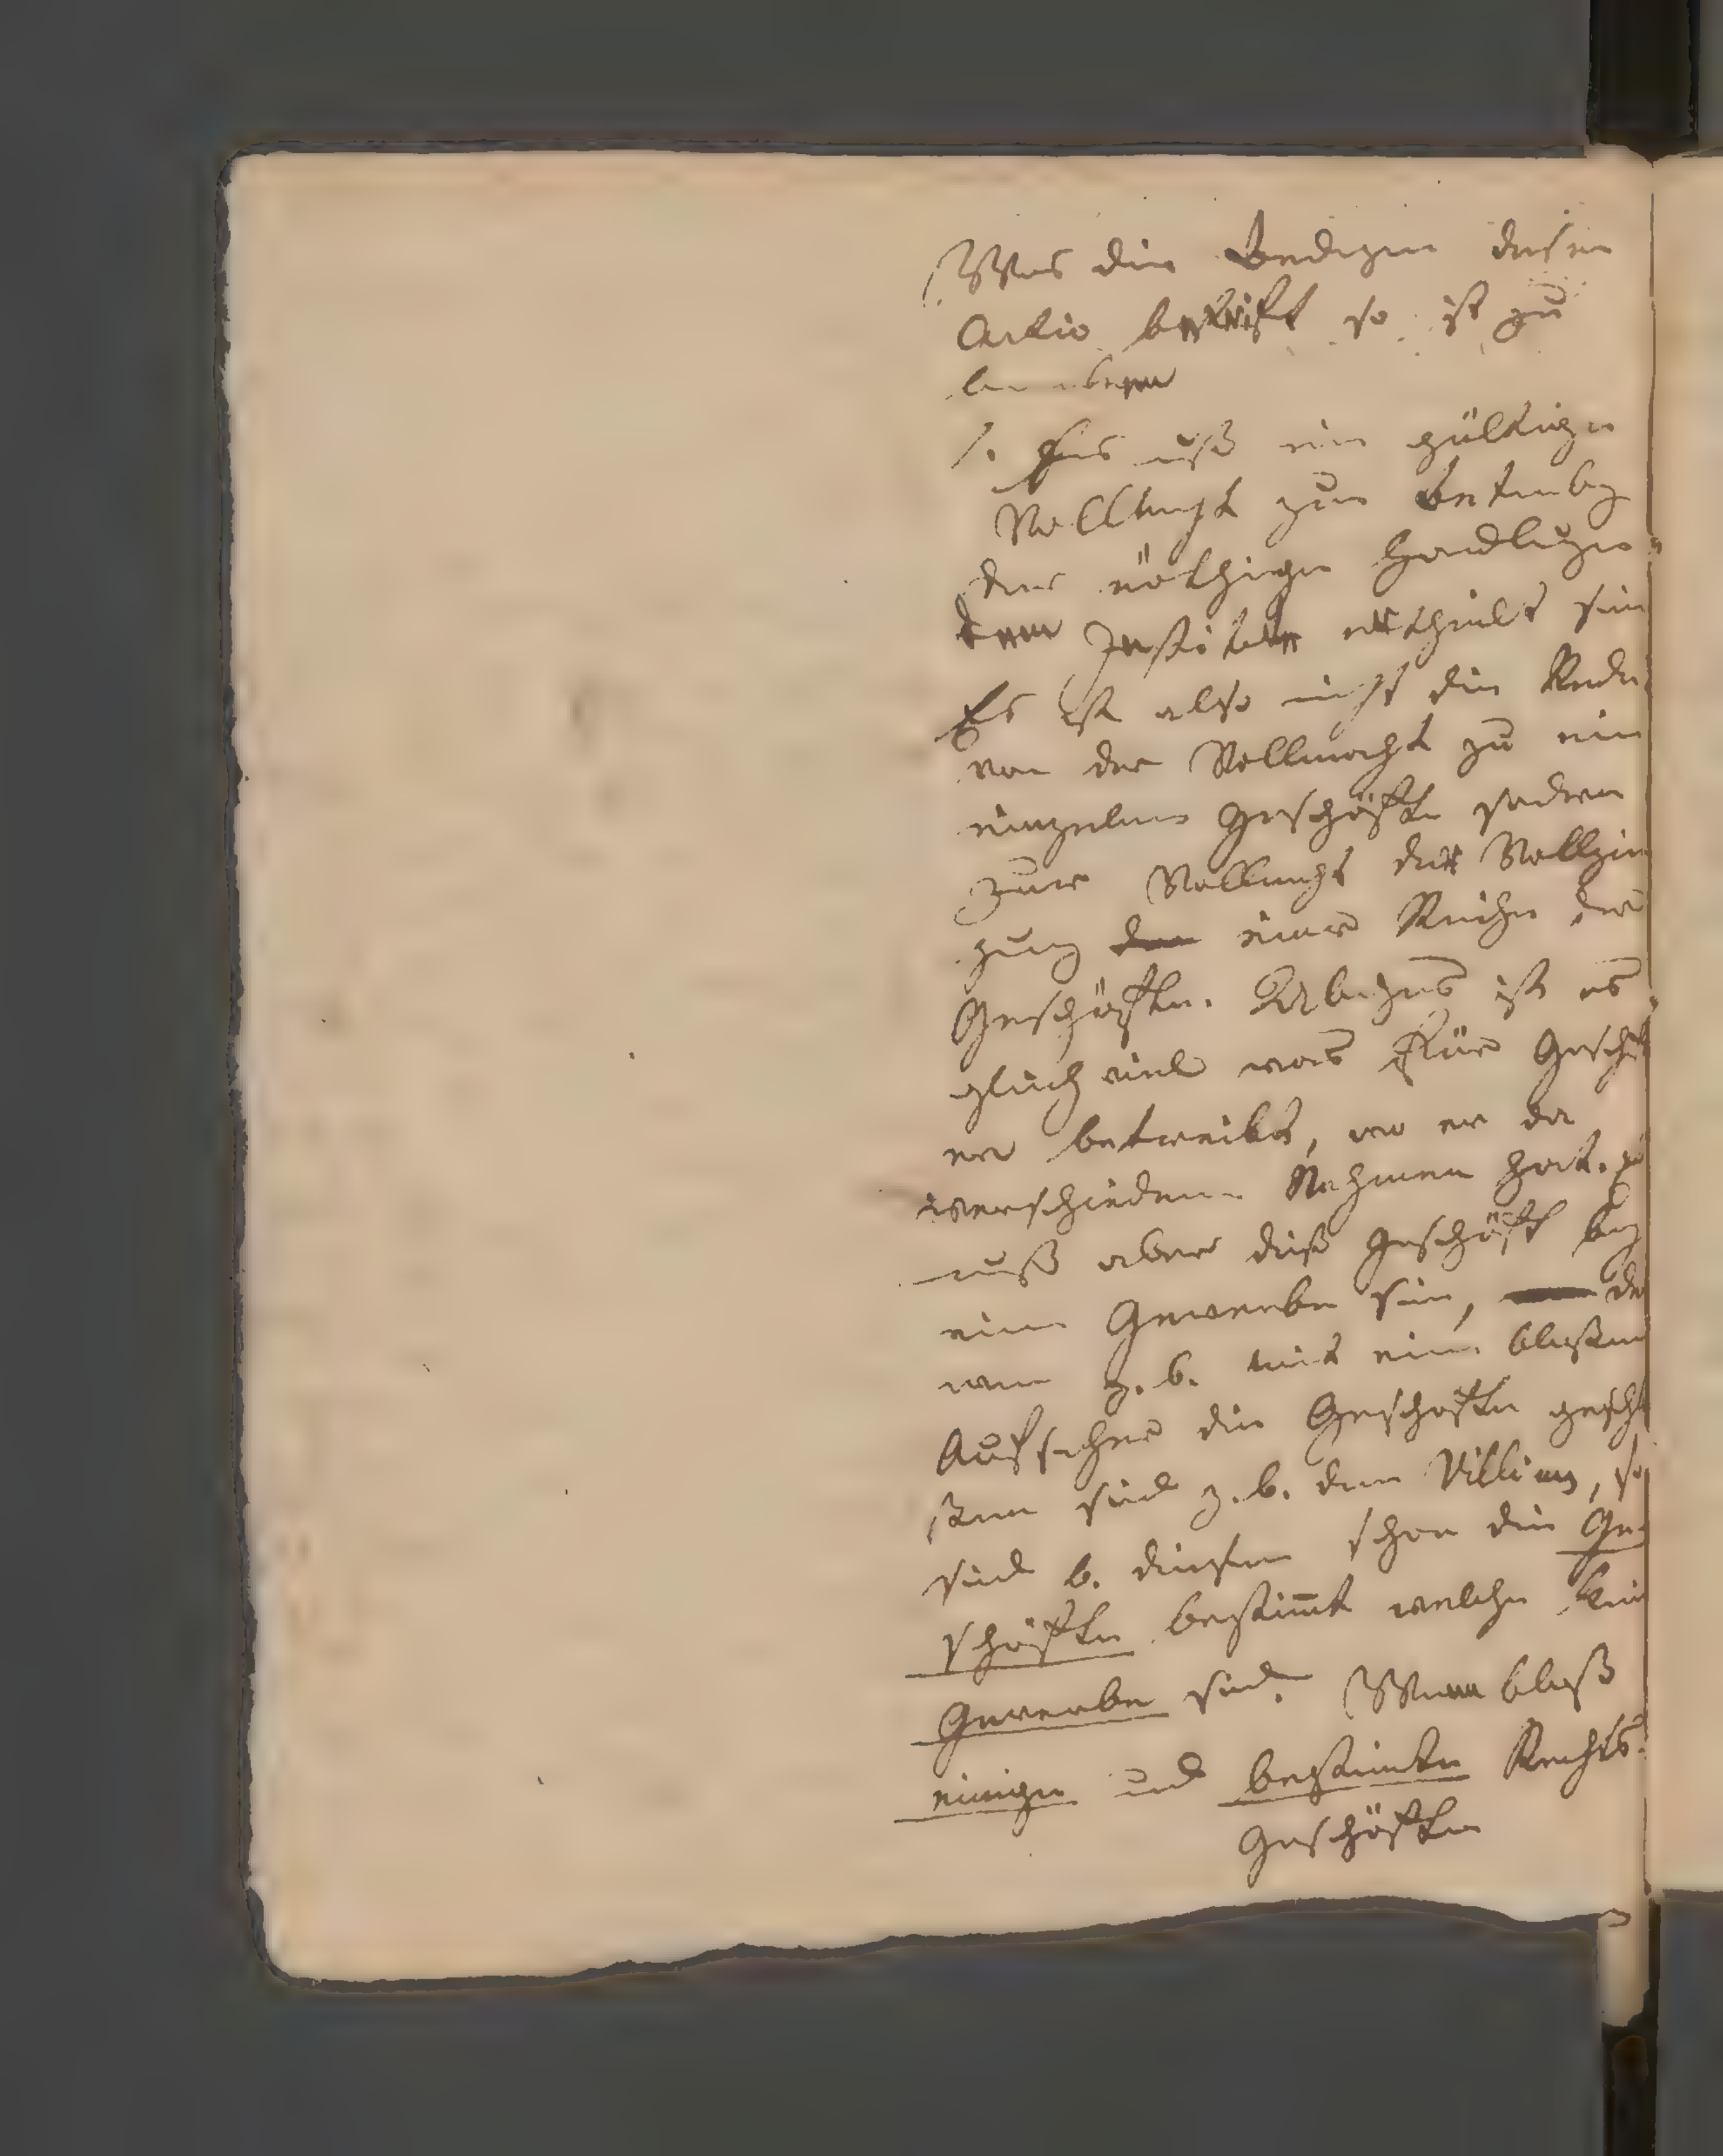 Was die Bedigen dieser
Actio betrift so ist zu
1. Es muß eine gültige
Vollmacht zur Betreibg
der nöthigen Handlugen
dem Institor ertheilt sein
Es ist also nicht die Rede
von der Vollmacht zu ein
einzelnen Geschäfte sodern
zur Vollmacht der Vollzie
hung einer Reihe der
Geschäfte. Übrigens ist es
gleich viel was für Gesch
er betreibt, wo er da
verschiedene Nahmen hat.
muß aber dieß Geschäft
ein Gewerbe sein, de
wen z.b. mit ein bloßen
Aufseher die Geschäfte gesch
sind z.b. dem Villicus, so
sind b. diesem schon die Ge-
schäfte bestimt welche kein
Gewerbe sind. Wenn bloß
einige und bestimte Rechts-
Geschäfte